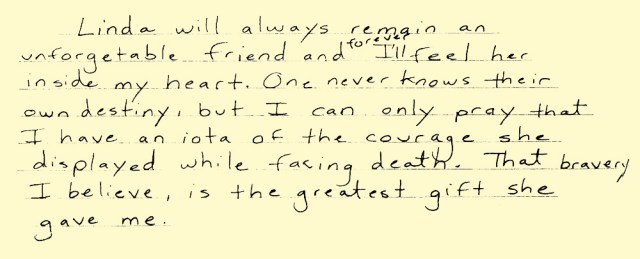 Linda will always remain an
unforgetable friend and forever I'll feel her
inside my heart. One never knows their
own destiny, but I can only pray that
I have an iota of the courage she
displayed while facing death. That bravery
I believe, is the greatest gift she
gave me.